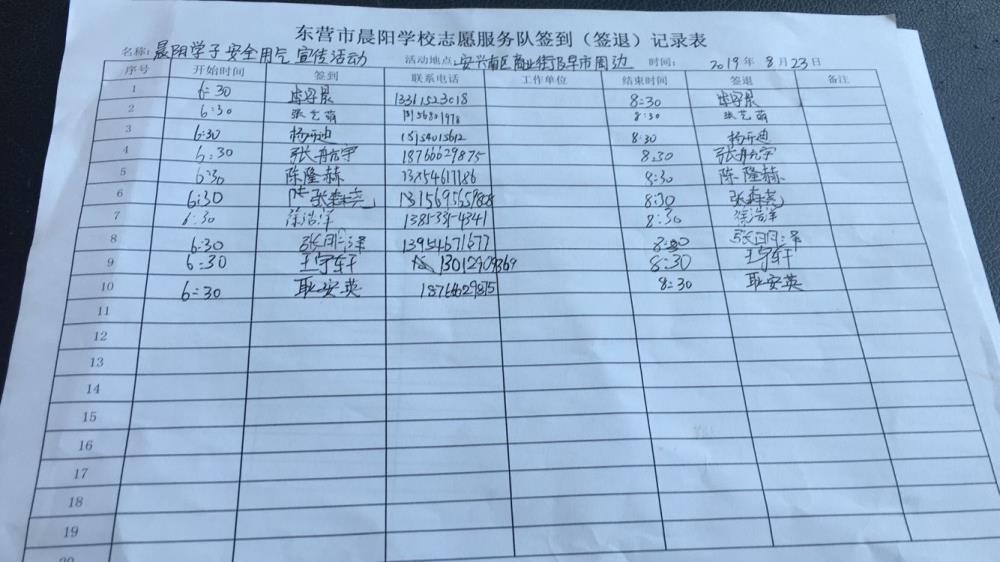 东营市晨阳学校志愿服务队签到（签退）记录表
名称：晨阳学子安全用气宣传活动 活动地点：安兴南区商业街及早市周边 时间： 2019年 8月23日
序号 开始时间 签到 联系电话 工作单位 结束时间 签退 备注
1 6:30 13311523018 8:30
2 6:30 张艺萌 8:30 张艺萌
3 6:30 8:30
4 6:30 张冉宇 18766629875 8:30 张冉宇
5 6:30 陈隆赫 13854617186 8:30 陈隆赫
6 6:30 张森尧 8:30 张森尧
7 6:30 徐浩洋 13853354341 8:30 徐浩洋
8 6:30 张明泽 13954671677 8:30 张明泽
9 6:30 王宇轩 8:30 王宇轩
10 6:30 耿安英 18766629875 8:30 耿安英
11
12
13
14
15
16
17
18
19